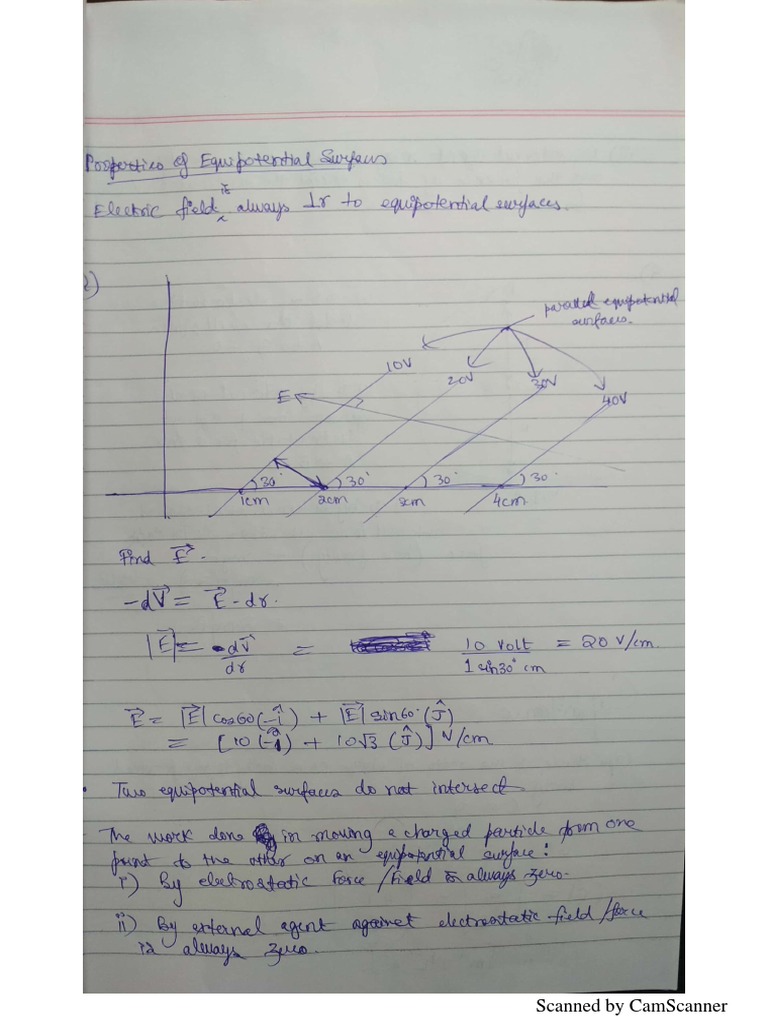 Properties of Equipotential Surfaces
Electric field is always ⊥r to equipotential surfaces.
parallel equipotential
surfaces.
10V
20V
30V
40V
E
30°
30°
30°
30°
1cm
2cm
3cm
4cm
Find E⃗.
-dV⃗ = E⃗ - dr.
|E⃗| = -dV⃗/dr = 10 volt / 1 sin30° cm = 20 V/cm.
E⃗ = |E⃗| cos60 (-î) + |E⃗| sin60° (ĵ)
= [10 (-î) + 10√3 (ĵ)] V/cm
Two equipotential surfaces do not intersect
The work done in moving a charged particle from one
point to the other on an equipotential surface:
i) By electrostatic Force/Field is always zero.
ii) By external agent against electrostatic field/force
is always zero.
Scanned by CamScanner